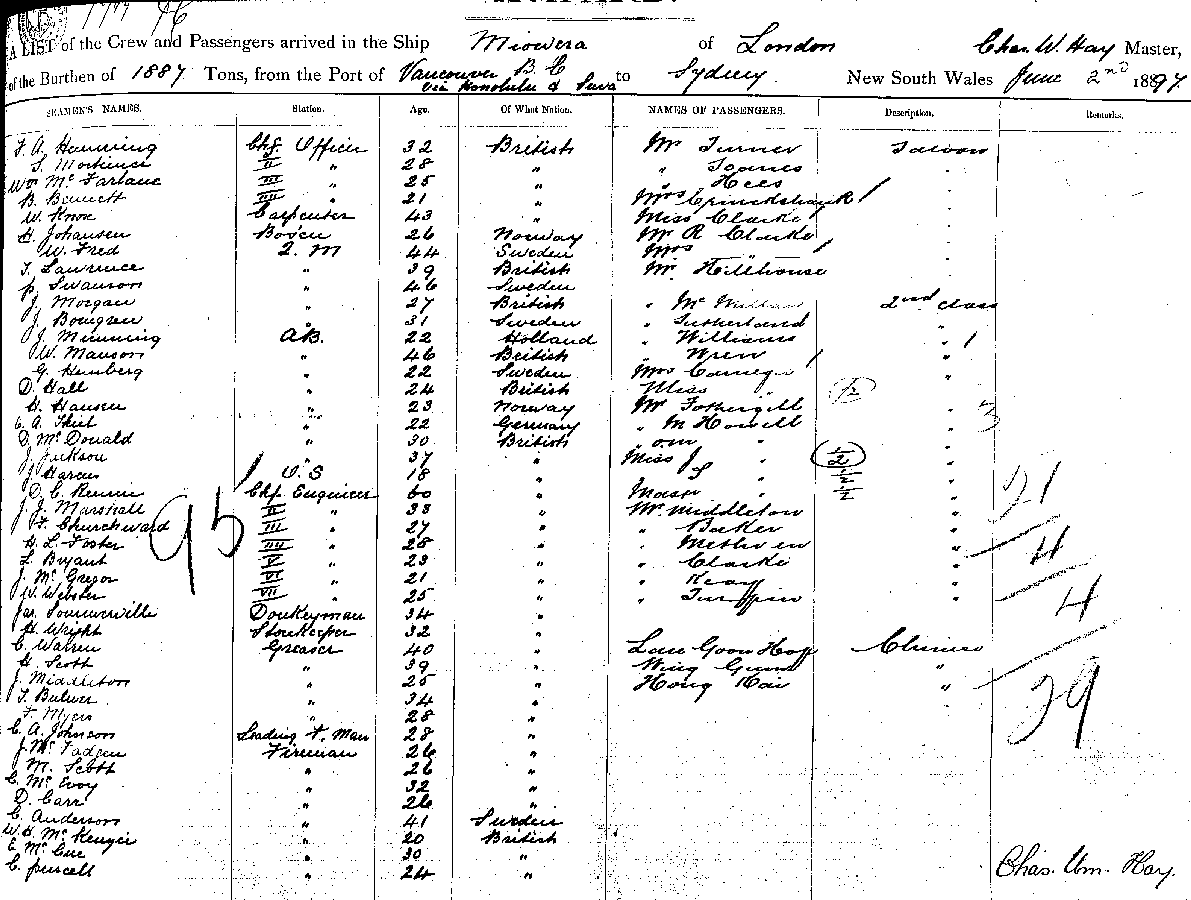 A LIST of the Crew and Passengers arrived in the Ship Miowera of London Chas. W. Hay Master,
of the Burthen of 1887 Tons, from the Port of Vancouver B.C via Honolulu & Suva to Sydney New South Wales June 2nd 1897
SEAMEN'S NAMES. Station. Age. Of What Nation. NAMES OF PASSENGERS. Description. Remarks.
F. A. Hemming Chf. Officer 32 British Mr Turner Saloon
S. Mortimer II " 28 " " Soames "
Wm McFarlane III " 25 " " Hees "
B. Bennett IIII " 21 " Mrs Cruickshank "
W. Knox Carpenter 43 " Miss Clarke "
H. Johansen Bos'en 26 Norway Mr R Clarke "
W. Fred Q. M 44 Sweden Mrs "
T. Lawrence " 39 British Mr Hillhouse "
P. Swanson " 46 Sweden
J. Morgan " 27 British " Mc Millan 2nd class
J. " 31 Sweden " Sutherland "
J. Minning AB. 22 Holland " Williams "
W. Manson " 46 British " Wren "
G. Hemberg " 22 Sweden Mrs "
D. Hall " 24 British Miss " 1/2 "
H. Hansen " 23 Norway Mr Fothergill "
" 22 Germany " M Howell "
D. McDonald " 30 British " "
J. Jackson " 37 " Miss J " 1/2 "
J. Harcus O.S 18 " " S " 1/2 "
D. C. Rennie Chf. Engineer 60 " Mast " 1/2 "
J. J. Marshall II " 38 " Mr Middleton " 21
F. Churchward III " 27 " " Baker "
H. L. Foster IIII " 28 " " Methven " 4
L. Bryant V " 23 " " Clarke "
J. McGregor VI " 21 " " Keay "
W. Webster VII " 25 " " " 4
Jas. Sommerville Donkeyman 34 "
H. Wright Storekeeper 32 "
C. Warren Greaser 40 " Chinese
H. Scott " 39 " "
J. Middleton " 25 " Hong Kai "
T. Bulwer " 34 " 29
F. Myers " 28 "
C. A. Johnson Leading F. Man 28 "
J. McFadzen Fireman 26 "
M. Scott " 26 "
C. McEvoy " 32 "
D. Carr " 26 "
C. Anderson " 41 Sweden
W. H. McKenzie " 20 British
E. McCue " 30 "
C. Purcell " 24 " Chas. Wm. Hay.
95